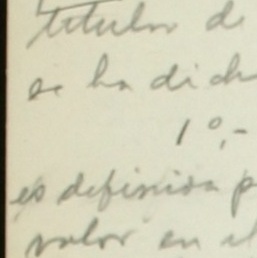 titular de
se ha dich
1º,-
es definida p
valor en el